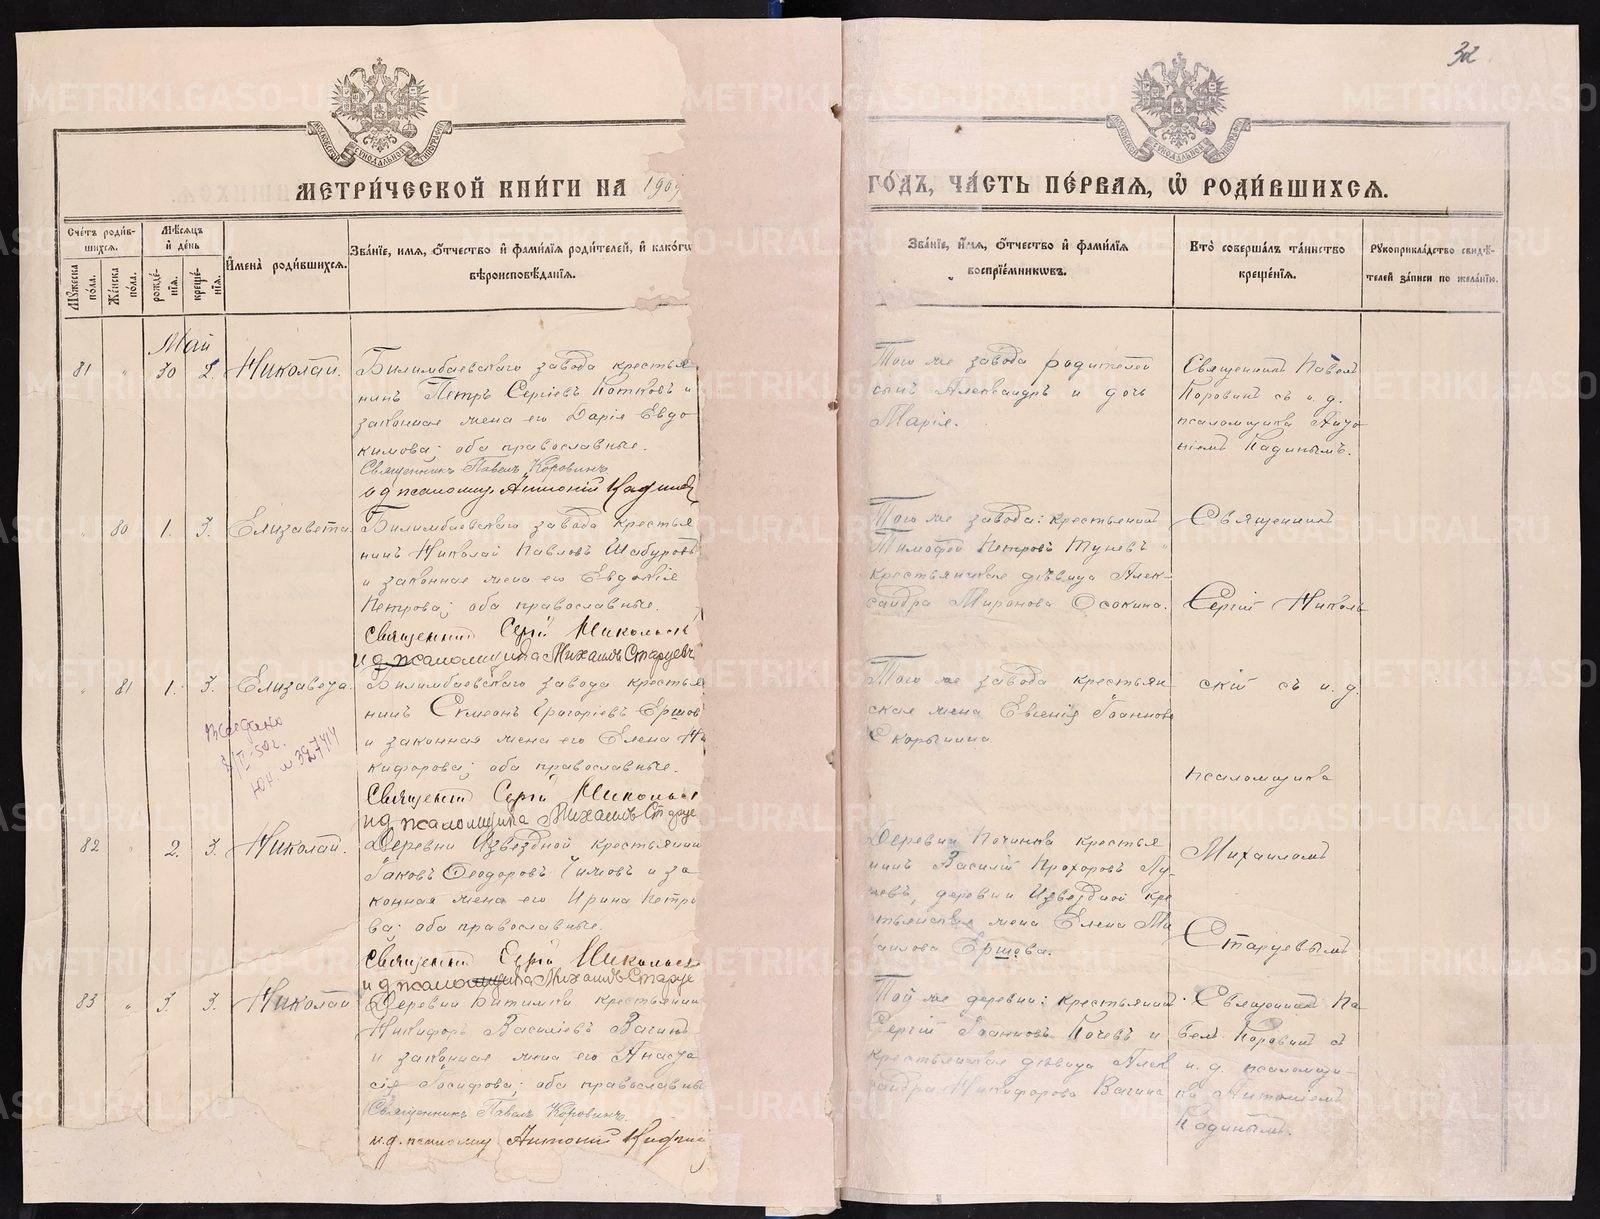 32
МЕТРИ́ЧЕСКОЙ КНИ́ГИ НА 1909
ГО́ДЪ, ЧА́СТЬ ПЕ́РВАЯ, Ѡ҆ РОДИ́ВШИХСѦ.
Сче́тъ роди́в-
шихсѧ.
Мꙋ́жеска
по́ла.
Же́нска
по́ла.
Мѣ́сѧцъ
и҆ де́нь
рожде́-
нїѧ.
креще́-
нїѧ.
И҆мена̀ роди́вшихсѧ.
Зва́нїе, и҆́мѧ, ѻ҆́тчество и҆ фами́лїѧ роди́телей, и҆ како́гѡ
вѣроисповѣ́данїѧ.
Зва́нїе, и҆́мѧ, ѻ҆́тчество и҆ фами́лїѧ
воспрїе́мникѡвъ.
Кто̀ соверша́лъ та́инство
креще́нїѧ.
Рꙋкоприкла́дство свидѣ́-
телей за́писи по жела́нїю.
Май
81 " 30 2. Николай.
Билимбаевскаго завода крестья
нинъ Петръ Сергіевъ Котковъ и
законная жена его Дарія Евдо
кимова; оба православные.
Священникъ Павелъ Коровинъ
и д псаломщ Антоній Кадинъ
Того же завода родителей
сынъ Александръ и дочь
Марія.
Священникъ Павелъ
Коровинъ съ и. д.
псаломщика Анто
ніемъ Кадинымъ.
" 80 1. 3. Елизавета.
Билимбаевскаго завода крестья
нинъ Николай Павловъ Шабуровъ
и законная жена его Евдокія
Петрова; оба православные.
Священникъ Сергій Никольск
и д псаломщика Михаилъ Старцевъ
Того же завода: крестьянинъ
Тимофей Петровъ Туневъ и
крестьянская дѣвица Алек-
сандра Миронова Осокина.
Священникъ
Сергій Николь
" 81 1. 3. Елизавета.
Билимбаевскаго завода крестья
нинъ Симеонъ Григоріевъ Ершов
и законная жена его Елена Ни
кифорова; оба православные.
Священникъ Сергій Никольск
и д псаломщика Михаилъ Старце
Того же завода крестьян-
ская жена Евгенія Іоаннова
Скорынина
скій съ и. д.
псаломщика
82 " 2. 3. Николай.
Деревни Извѣздной крестьянин
Іаковъ Ѳеодоровъ Чижовъ и за
конная жена его Ирина Петро
ва; оба православные.
Священникъ Сергій Никольск
и д псаломщика Михаилъ Старце
Деревни Починка крестья
нинъ Василій Прохоровъ
деревни Извѣздной кре
стьянская жена Елена Ми
хаилова Ершова.
Михаиломъ
Старцевымъ
83 " 3. 3. Николай
Деревни Битимки крестьянин
Никифоръ Василіевъ Вагинъ
и законная жена его Анаста
сія Іосифова; оба православные
Священникъ Павелъ Коровинъ
и. д. псаломщ Антоній Кадин
Той же деревни: крестьянинъ
Сергій Іоанновъ Кочевъ и
крестьянская дѣвица Алек
сандра Никифорова Вагина
Священникъ Па
велъ Коровинъ съ
и. д. псаломщи-
ка Антоніемъ
Кадинымъ.